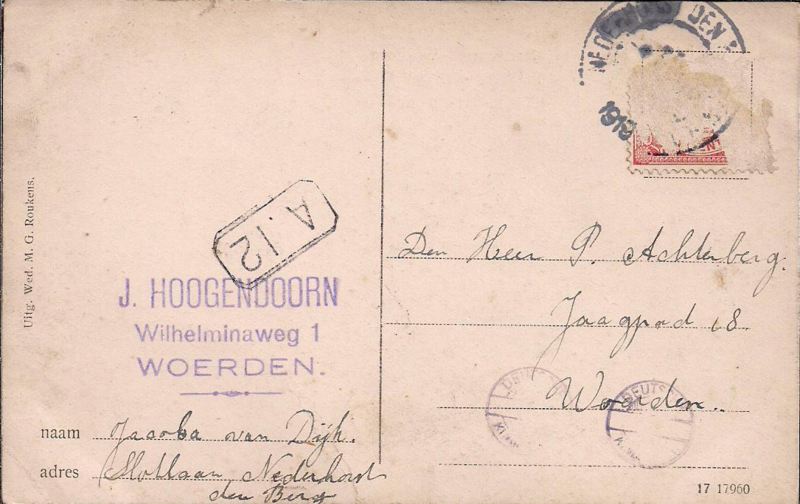 1919
CENT
Uitg. Wed. M. G. Roukens.
A.12
J. HOOGENDOORN
Wilhelminaweg 1
WOERDEN.
Den Heer P. Achterberg.
Jaagpad 18
Woerden.
naam Jacoba van Dijk.
adres Slotlaan Nederhorst
den Berg
17 17960